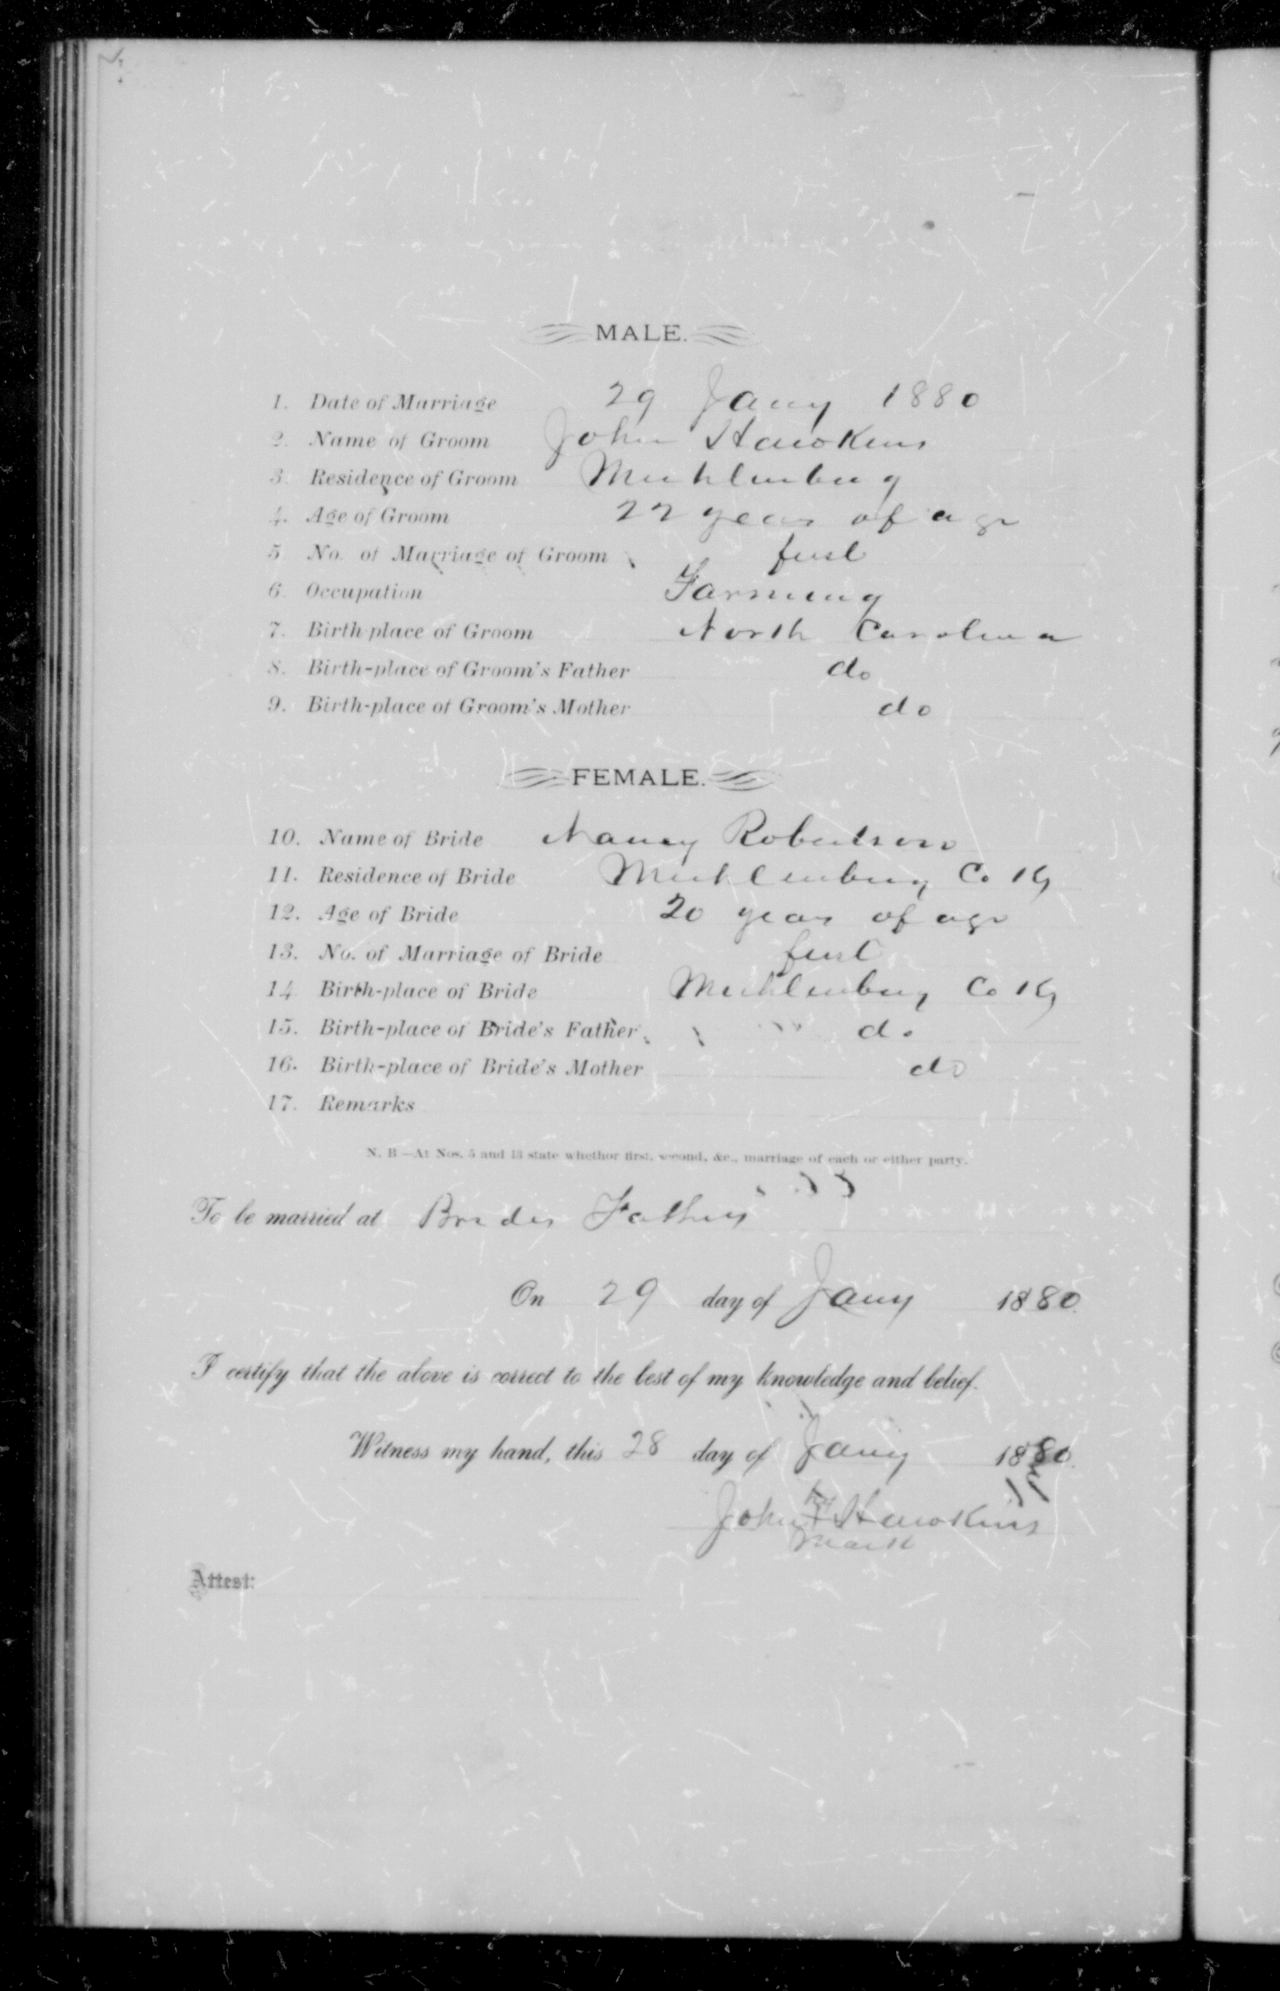 MALE.
1. Date of Marriage 29 Jany 1880
2. Name of Groom John Hawkins
3. Residence of Groom Muhlenburg
4. Age of Groom 22 years of age
5 No. of Marriage of Groom first
6. Occupation Farming
7. Birth-place of Groom North Carolina
8. Birth-place of Groom's Father do
9. Birth-place of Groom's Mother do
FEMALE.
10. Name of Bride Nancy Robertson
11. Residence of Bride Muhlenburg Co Ky
12. Age of Bride 20 years of age
13. No. of Marriage of Bride first
14 Birth-place of Bride Muhlenburg Co Ky
15. Birth-place of Bride's Father do
16. Birth-place of Bride's Mother do
17. Remarks
N. B—At Nos. 5 and 13 state whethor first, second, &c., marriage of each or either party.
To be married at Brides Fathers
On 29 day of Jany 1880.
I certify that the above is correct to the best of my knowledge and belief.
Witness my hand, this 28 day of Jany 1880.
John + Hawkins
mark
Attest: